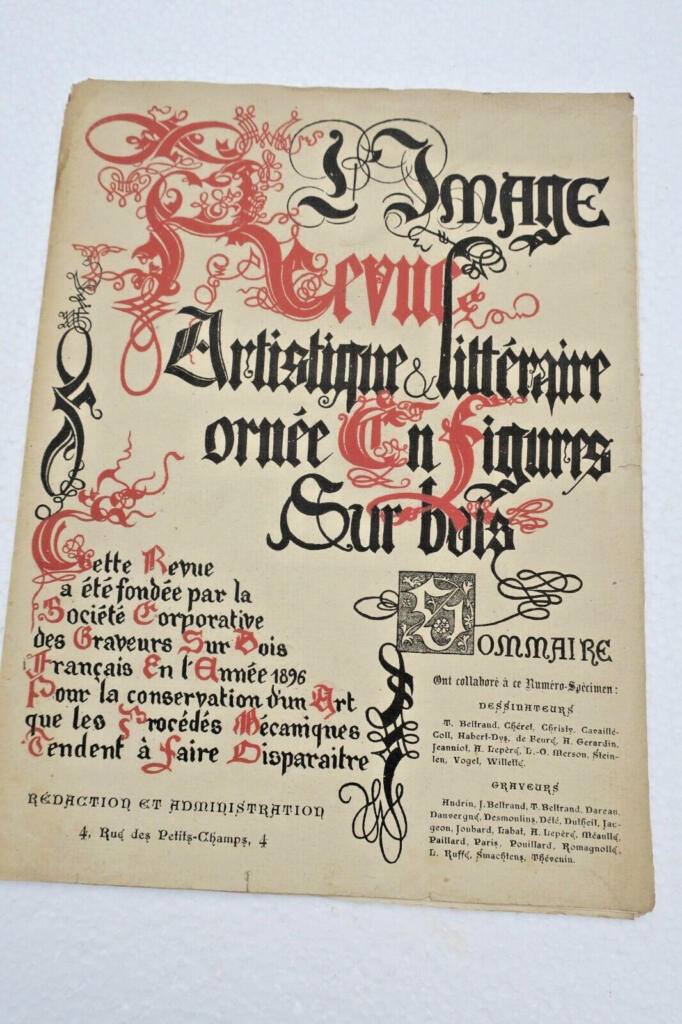 L'Image
Revue
Artistique & littéraire
ornée En Figures
Sur bois
Cette Revue
a été fondée par la
Société Corporative
des Graveurs Sur Bois
Français En l'Année 1896
Pour la conservation d'un Art
que les Procédés Mécaniques
Tendent à faire Disparaitre
RÉDACTION ET ADMINISTRATION
4, Rue des Petits-Champs, 4
SOMMAIRE
Ont collaboré à ce Numéro-Spécimen:
DESSINATEURS
T. Beltrand, Chéret, Christy, Cavaillé-
Coll, Habert-Dys, de Feure, A. Gerardin,
Jeanniot, A. Lepère, L.-O. Merson, Stein-
len, Vogel, Willette.
GRAVEURS
Andrin, J. Beltrand, T. Beltrand, Dareau,
Dauvergne, Desmoulins, Dété, Dutheil, Jac-
geon, Joubard, Labat, A. Lepère, Méaulle,
Paillard, Paris, Pouillard, Romagnolle,
L. Ruffe, Smachtens, Thévenin.